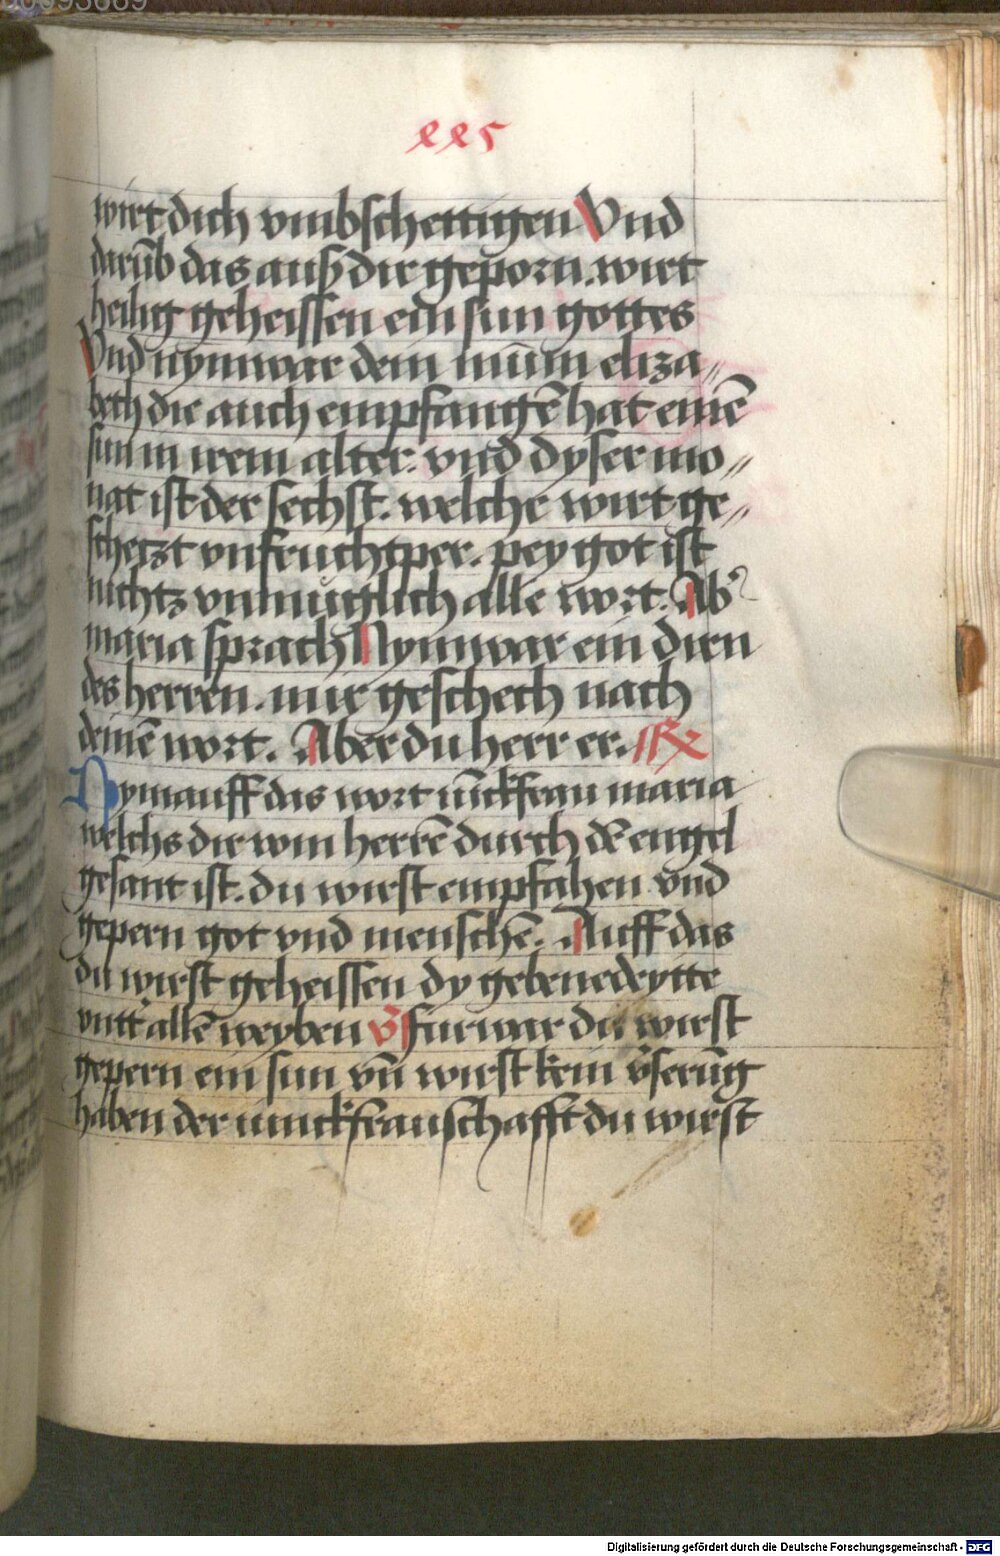 225
wirt dich vmbschettigen Vnd
darūb das auß dir geporn. wirt
heilig geheissen ein sun gottes
Vnd nym war dein mūm eliza⸗
beth die auch empfangē hat einē
sun in irem alter. vnd dyser mo⸗
nat ist der sechst. welche wirt ge⸗
scheczt vnfruchtper. pey got ist
nichtz vnmuglich alle wort. Ab͛
maria sprach Nym war ein dirn
des herren. mir geschech nach
deinē wort. Aber du herr er. Rx
Nym auff das wort iūckfrau maria
welchs dir vom herrē durch dē engel
gesant ist. du wirst empfahen vnd
gepern got vnd menschē. Auff das
du wirst geheissen dy gebenedeytte
vntt͛ allē weyben v̄s furwar du wirst
gepern ein sun vn̄ wirst kein v͛serūg
haben der iunckfrauschafft du wirst
Digitalisierung gefördert durch die Deutsche Forschungsgemeinschaft - DFG